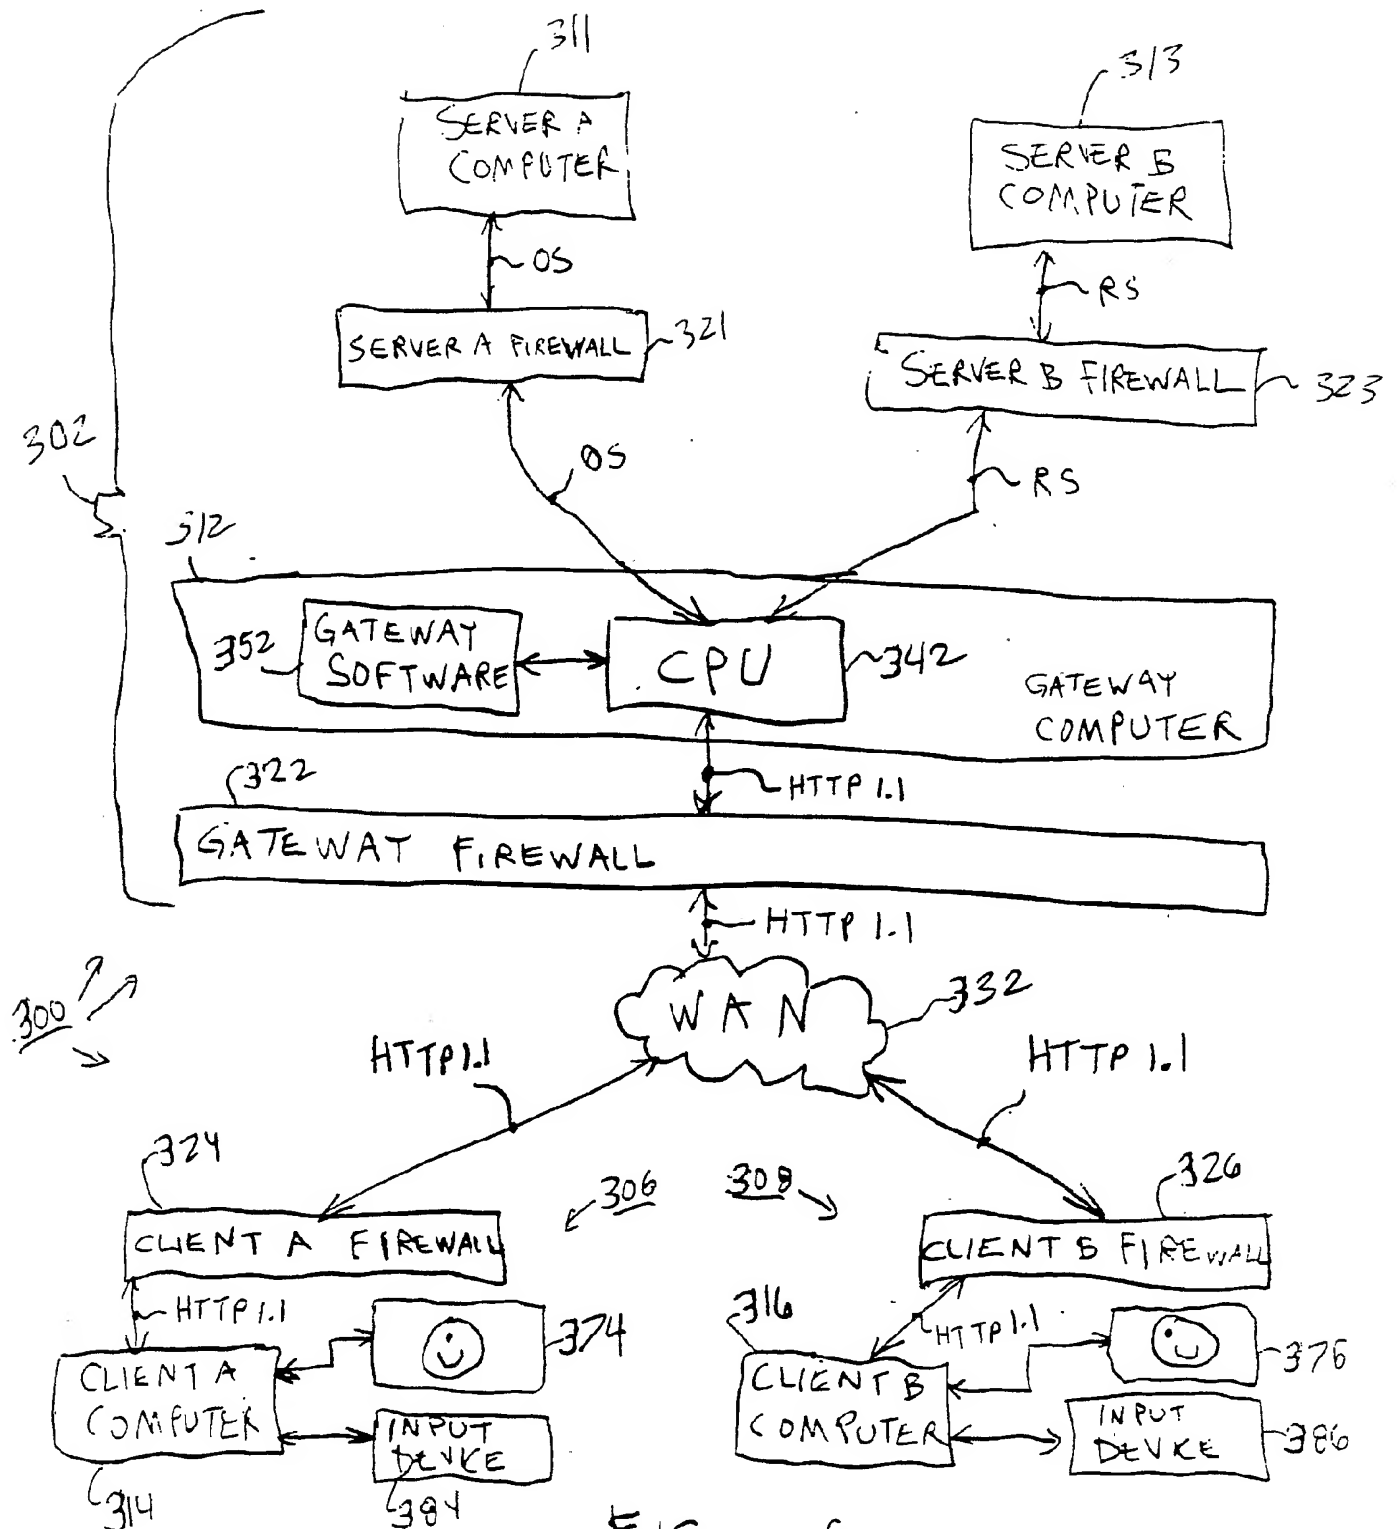 311
SERVER A
COMPUTER
313
SERVER B
COMPUTER
OS
RS
SERVER A FIREWALL
321
SERVER B FIREWALL
323
302
OS
RS
312
352
GATEWAY
SOFTWARE
CPU
342
GATEWAY
COMPUTER
322
HTTP 1.1
GATEWAY FIREWALL
HTTP 1.1
300
WAN
332
HTTP 1.1
HTTP 1.1
324
306
308
326
CLIENT A FIREWALL
CLIENT B FIREWALL
HTTP 1.1
374
316
HTTP 1.1
376
CLIENT A
COMPUTER
CLIENT B
COMPUTER
INPUT
DEVICE
INPUT
DEVICE
386
314
384